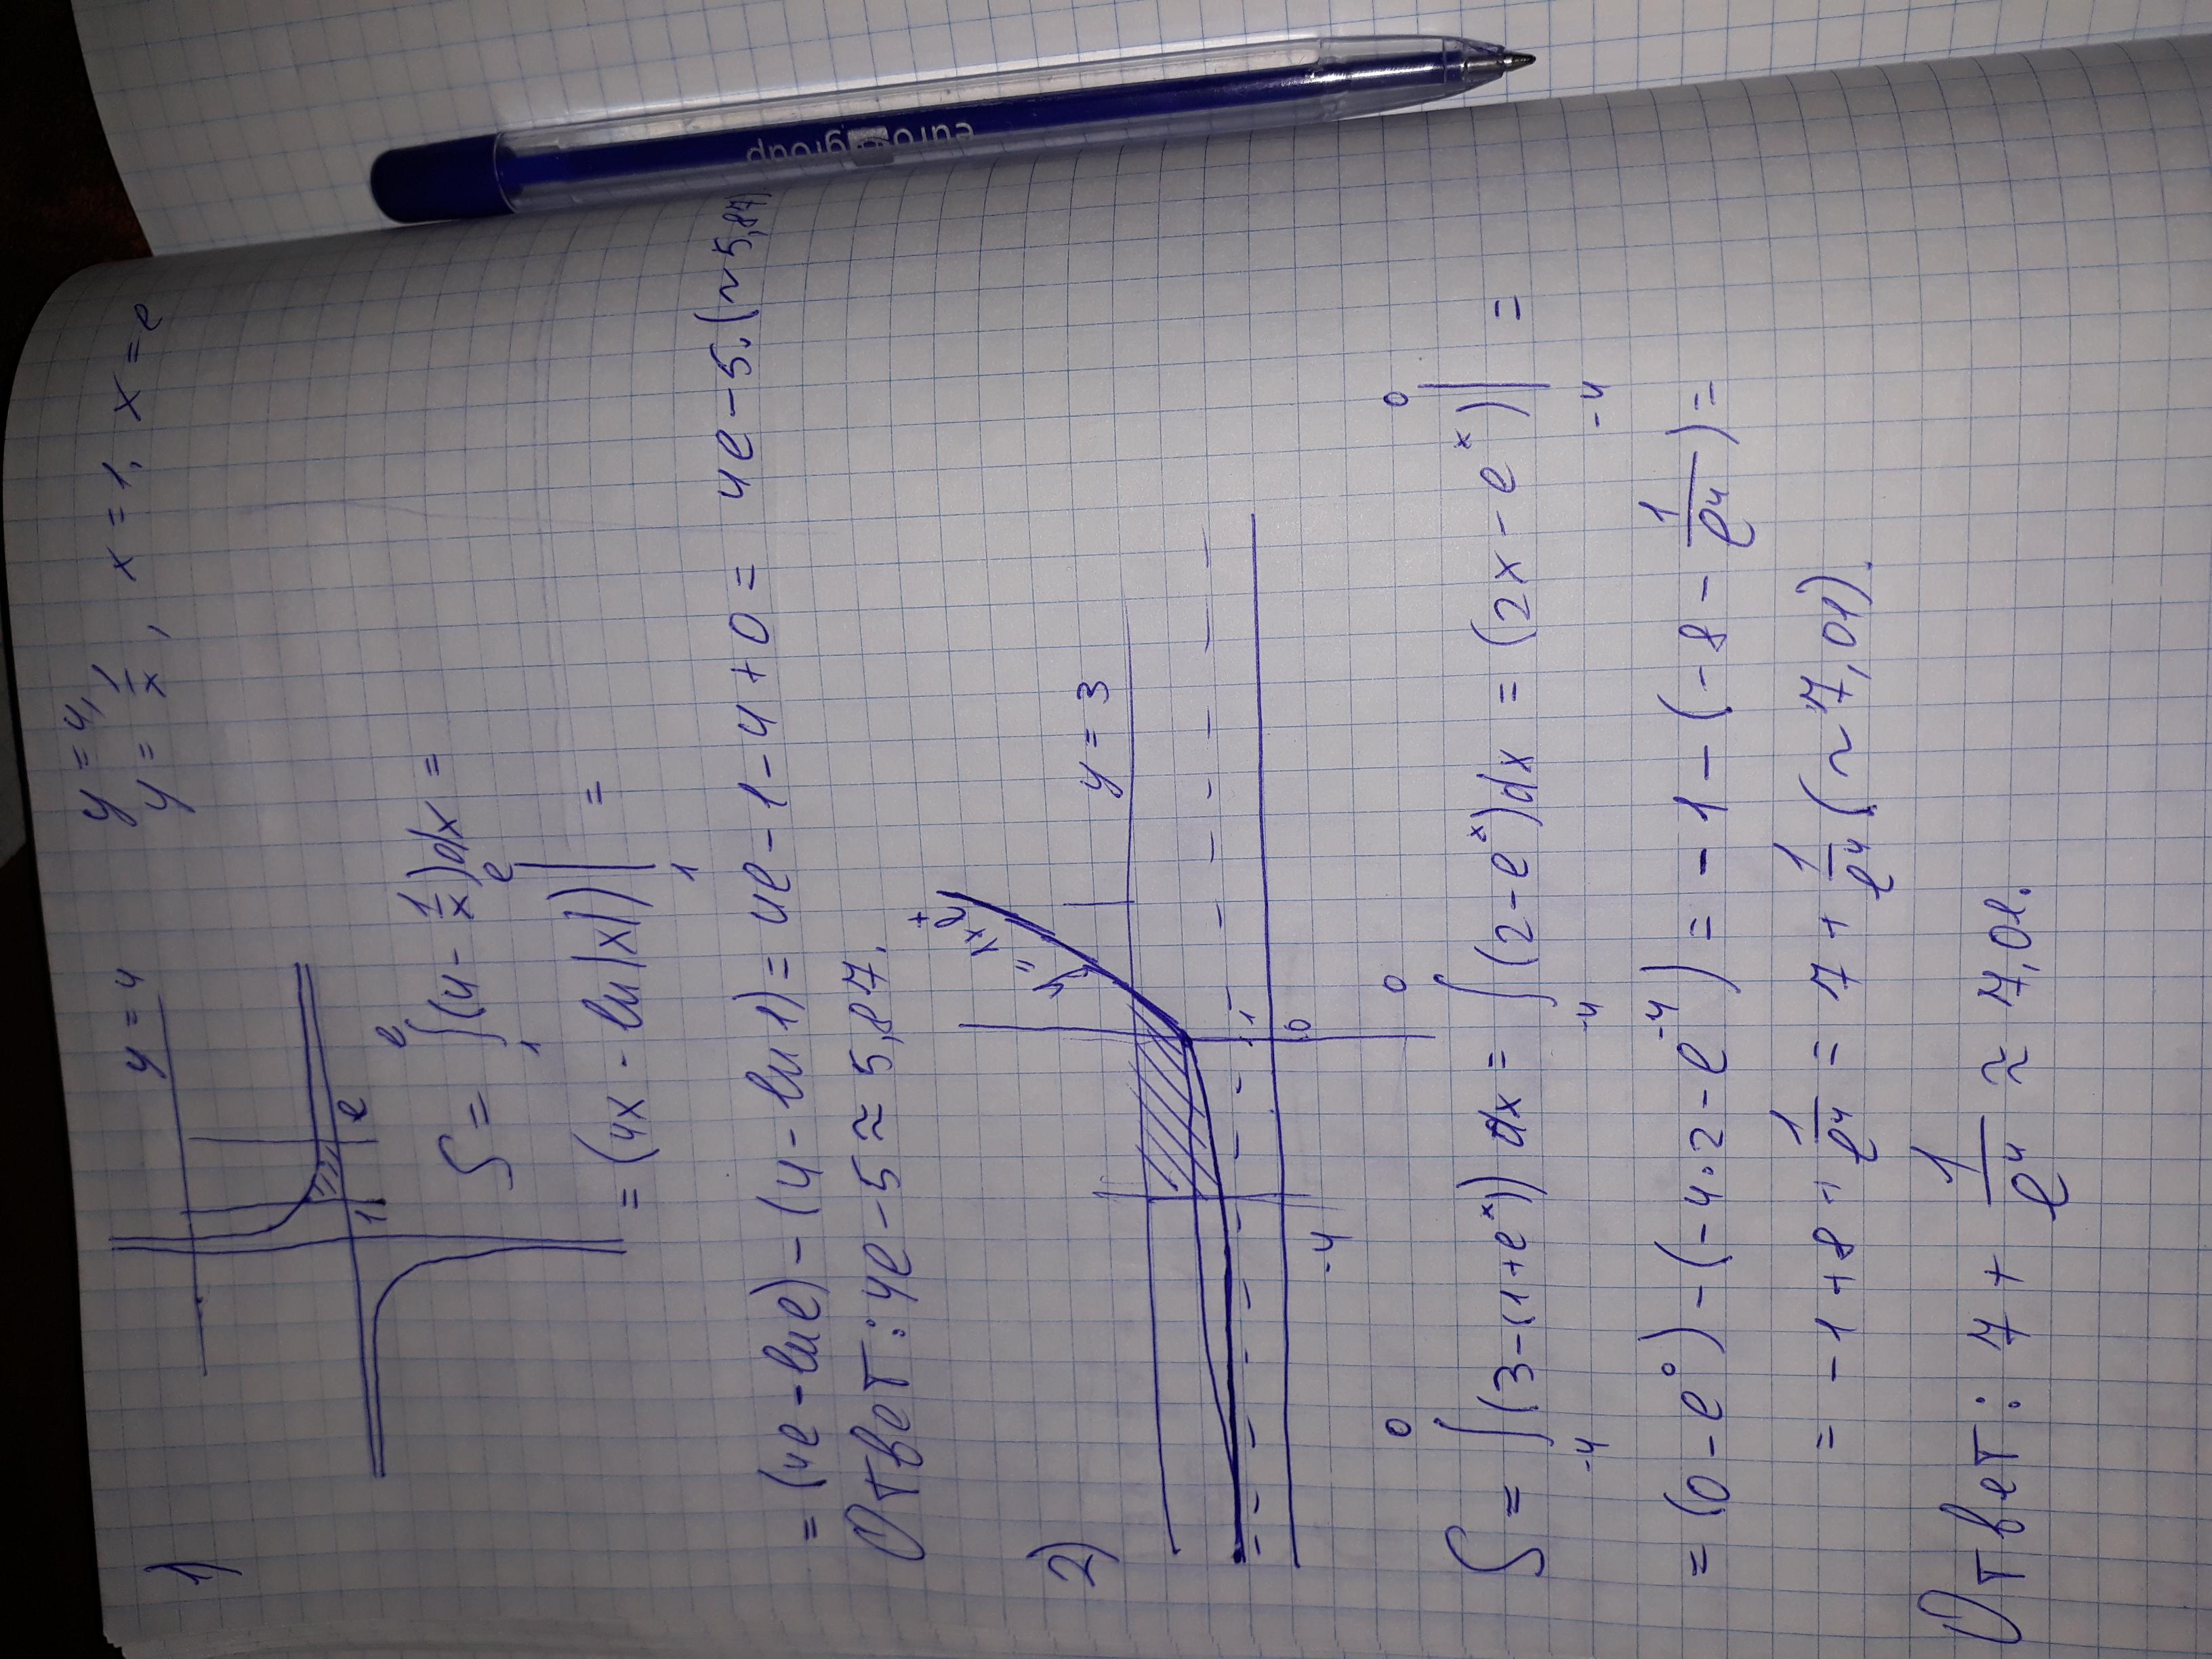 1)
y = 4
y = 4,
y = 1/x, x = 1, x = e
1 e
S = ∫₁ᵉ (4 - 1/x)dx =
= (4x - ln|x|)|₁ᵉ =
= (4e - ln e) - (4 - ln 1) = 4e - 1 - 4 + 0 = 4e - 5. (~5,87)
Ответ: 4e - 5 ≈ 5,87.
2)
y = eˣ + 1
y = 3
1
-4 0
S = ∫₋₄⁰ (3 - (1 + eˣ)) dx = ∫₋₄⁰ (2 - eˣ)dx = (2x - eˣ)|₋₄⁰ =
= (0 - e⁰) - (-4·2 - e⁻⁴) = -1 - (-8 - 1/e⁴) =
= -1 + 8 + 1/e⁴ = 7 + 1/e⁴ (~7,01).
Ответ: 7 + 1/e⁴ ≈ 7,01.
eurogroup